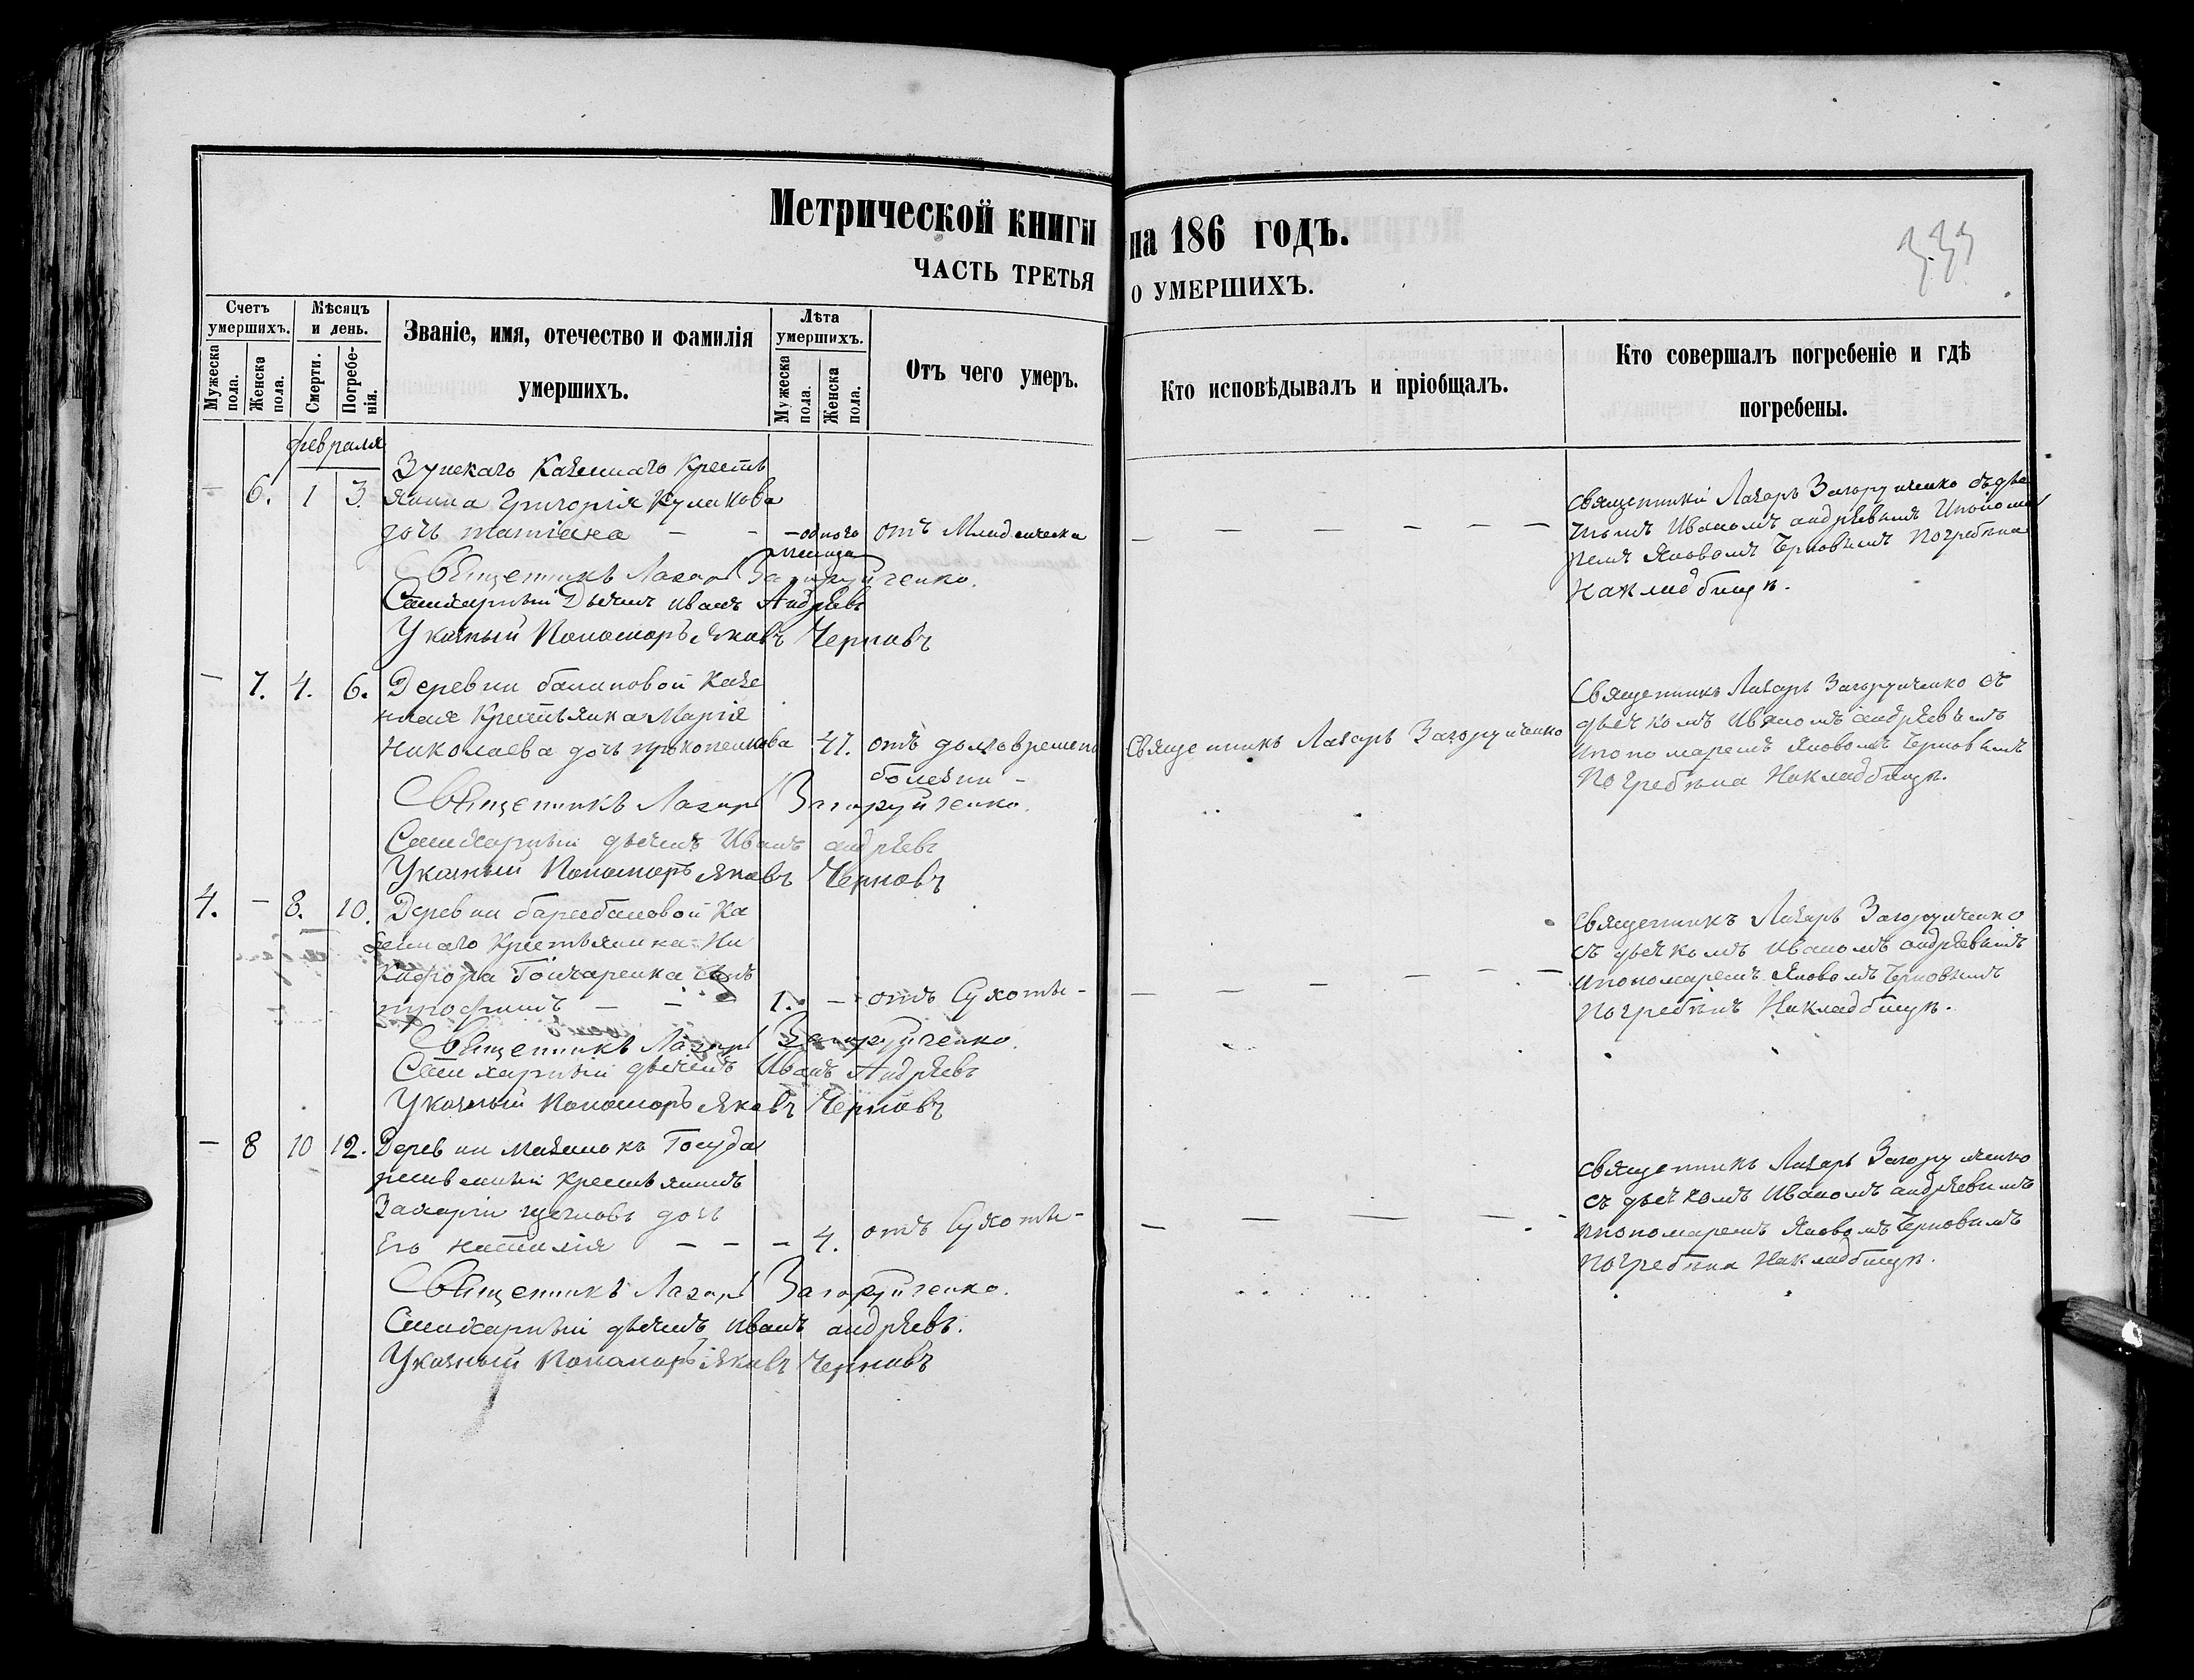 Метрической книги на 186 годъ.
ЧАСТЬ ТРЕТЬЯ О УМЕРШИХЪ.
Счетъ умершихъ.
Мужеска пола.
Женска пола.
Мѣсяцъ и день.
Смерти.
Погребенія.
Званіе, имя, отечество и фамилія
умершихъ.
Лѣта умершихъ.
Мужеска пола.
Женска пола.
Отъ чего умеръ.
Кто исповѣдывалъ и пріобщалъ.
Кто совершалъ погребеніе и гдѣ
погребены.
февраля
Казеннаго Кресть
— 6. 1 3. янина Григорія Кулакова
дочь татіана — - — одного отъ Младенческа
месяца
Священникъ Лазарь Загоруйченко.
Стихарный Дьячекъ Иванъ Андрѣевъ
Указный Пономарь Яковъ Черновъ
Священникъ Лазарь Загоруйченко съ дья
Иваномъ андрѣевымъ Ипонома
ремъ Яковомъ Черновымъ Погребена
Накладбищѣ.
— 7. 4. 6. Деревни Казе
нная Крестьянка Марія
Николаева дочь 47. отъ долговремен
болезни -
Священникъ Лазарь Загоруйченко.
Стихарный дьячекъ Иванъ андрѣевъ
Указный Пономарь Яковъ Черновъ
Священникъ Лазарь Загоруйченко
Священникъ Лазарь Загоруйченко съ
дьячкомъ Иваномъ андрѣевымъ
Ипономаремъ Яковомъ Черновымъ
Погребена Накладбищѣ.
4. — 8. 10. Деревни Ка
зеннаго Крестьянина Ни
кифора Гончаренка сынъ
трофимъ — - 1. - отъ Сухоты -
Священникъ Лазарь Загоруйченко.
Стихарный дьячекъ Иванъ Андрѣевъ
Указный Пономарь Яковъ Черновъ
Священникъ Лазарь Загоруйченко
съ дьячкомъ Иваномъ андрѣевымъ
Ипономаремъ Яковомъ Черновымъ
Погребенъ Накладбищѣ.
— 8 10 12. Деревни Госуда
рственный Крестьянинъ
Захарій дочь
Его наталія — — — 4. отъ Сухоты -
Священникъ Лазарь Загоруйченко.
Стихарный дьячекъ Иванъ андрѣевъ.
Указный Пономарь Яковъ Черновъ
Священникъ Лазарь Загоруйченко
съ дьячкомъ Иваномъ андрѣевымъ
Ипономаремъ Яковомъ Черновымъ
Погребена Накладбищѣ.